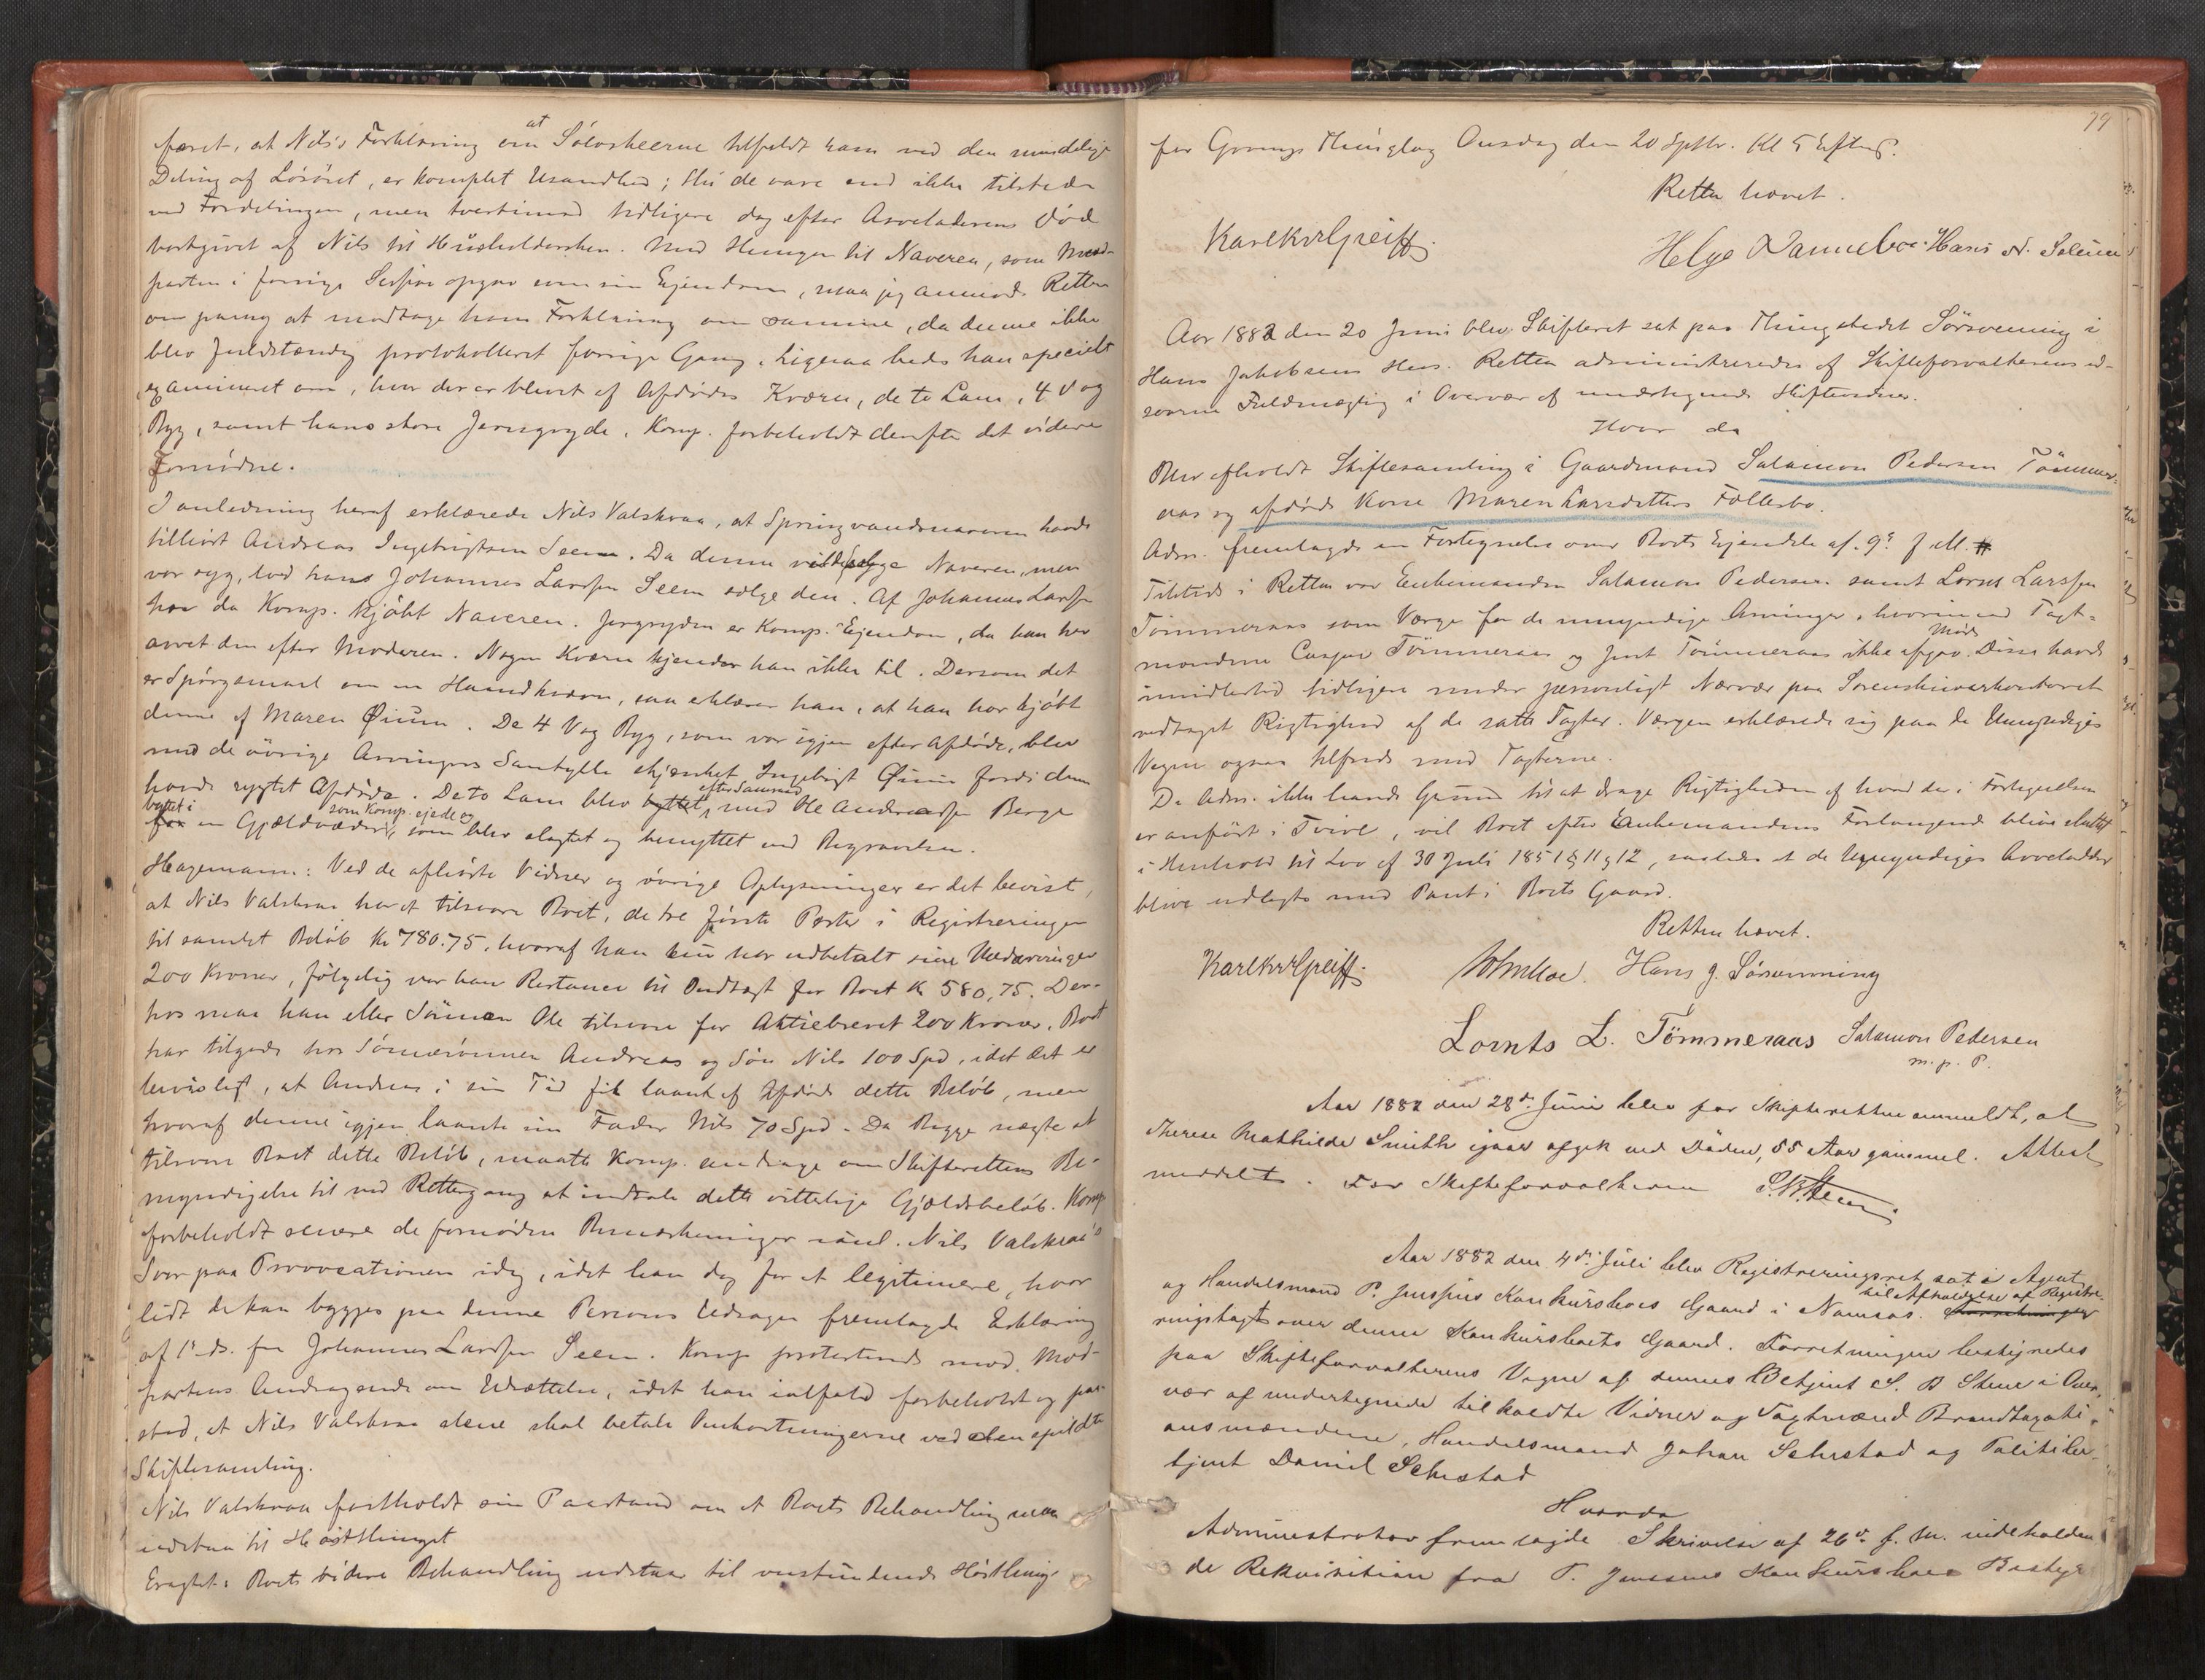 færet, at Nils's Forklaring om at Sølvskeerne tilfaldt ham ved den mindelige
Deling af Løsøret, er komplet Usandhed; thi de vare end ikke tilstede
ved Fordelingen, men tvertimod tidligere dog efter Arveladerens Død
bortgivet af Nils til Husholdersken. Med Hensyn til Naveren, som Mod-
parten i forrige Session opgav som sin Ejendom, maa jeg anmode Retten
om paany at modtage hans Forklaring om samme, da denne ikke
blev fuldstændig protokolleret forrige Gang. Ligesaa bedes han specielt
examineret om, hvor der er blevet af Afdødes Kværn, de to Lam, 4 Vog
Byg, samt hans store Jerngryde. Komp. forbeholdt derefter det videre
Fornødne.
I anledning heraf erklærede Nils Valskraa, at Springvandsnaveren havde
tilhørt Andreas Ingebrigtsen Seem. Da denne vilde sælge Naveren, men
var syg, lod hans Johannes Larssen Seem sælge den. Af Johannes Larssen
har da Komp. kjøbt Naveren. Jerngryden er Komp. Ejendom, da han har
arvet den efter Moderen. Nogen Kværn kjender han ikke til. Dersom det
er Spørgsmaal om en Haandkværn, saa erklærer han, at han har kjøbt
denne af Maren Øium. De 4 Vog Byg, som var igjen efter Afdøde, blev
med de øvrige Arvingers Samtykke skjænket Ingebrigt Øium fordi denne
havde røgtet Afdøde. De to Lam blev byttet, efter Samraad med Ole Andreassen Berge
byttet i for en Gjældvæder, som Komp. ejede og som blev slagtet og benyttet ved Begravelsen.
Hagemann: Ved de afhørte Vidner og øvrige Oplysninger er det bevist,
at Nils Valskraa har at tilsvare Boet, de tre første Poster i Registreringen
til samlet Beløb Kr 780.75, hvoraf han kun har udbetalt sine Medarvinger
200 Kroner, følgelig var hans Restance til Indtægt for Boet Kr 580,75. Der-
hos maa han eller Sønnen Ole tilsvare for Aktiebrevet 200 Kroner. Boet
har tilgode hos Andreas og Søn Nils 100 Spd, idet det er
beviseligt, at Andreas i sin Tid fik laant af Afdøde dette Beløb, men
hvoraf denne igjen laante sin Fader Nils 70 Spd. Da Begge nægte at
tilsvare Boet dette Beløb, maatte Komp. andrage om Skifterettens Be-
myndigelse til ved Rettergang at indtale dette vitterlige Gjældsbeløb. Komp
forbeholdt senere de fornødne Bemærkninger. Nils Valskraa's
Svar paa Provocationen idag, idet han dog for at legitimere, hvor
lidt der kan bygges paa denne Persons Udsagn fremlagde Erklæring
af 1ste ds. fra Johannes Larssen Seem. Komp protesterede mod Mod-
partens Andragende om Udsættelse, idet han ialfald forbeholdt og paa-
stod, at Nils Valskraa alene skal betale Omkostningerne ved den spildte
Skiftesamling.
Nils Valskraa fastholdt sin Paastand om at Boets Behandling maa
udstaa til Høstthinget
Eragtet: Boets videre Behandling udstaar til instundende Høstthing
79
for Grongs Thinglag Onsdag den 20 Septbr. Kl 5 Efterm.
Retten hævet.
Karl Greiff. Helge Dannebo. Hans N. Solem
Aar 1882 den 20 Juni blev Skifteret sat paa Thingstedet Sørvenning i
Hans Jakobsens Hus. Retten administreredes af Skifteforvalterens ed-
svorne Fuldmægtig i Overvær af undertegnede Skiftevidner.
Hvor da
Blev afholdt Skiftesamling i Gaardmand Salamon Pedersen Tømmer-
aas og afdøde Kone Maren Larsdatters Fællesbo.
Adm. fremlagde en Fortegnelse over Boets Ejendele af 9de f. M.
Tilstede i Retten var Enkemanden Salamon Pedersen samt Lornts Larssen
Tømmeraas som Værge for de umyndige Arvinger, hvorimod Taxt-
mændene Casper Tømmeraas og Jent Tømmeraas ikke afgav Møde. Disse havde
imidlertid tidligere under personligt Nærvær paa Sorenskriverkontoret
vedtaget Rigtighed af de satte Taxter. Værgen erklærede sig paa de Umyndiges
Vegne ogsaa tilfreds med Taxterne.
Da Adm. ikke havde Grund til at drage Rigtigheden af hvad der i Fortegnelsen
er anført i Tvivl, vil Boet efter Enkemandens Forlangende blive sluttet
i Henhold til Lov af 30 Juli 1851 §§ 11 og 12, saaledes at de Umyndiges Arvelodder
blive udlagte med Pant i Boets Gaard.
Retten hævet.
Karl Greiff. Hans J. Sørvenning
Lornts L. Tømmeraas Salamon Pedersen
m. p. P.
Aar 1882 den 28de Juni blev for Skifteretten anmeldt, at
Therese Mathilde Smith igaar afgik ved Døden, 55 Aar gammel. Attest
meddelt. For Skifteforvalteren S. B. Steen
Aar 1882 den 4de Juli blev Registreringsret sat i Agent
og Handelsmand P. Jenssens Konkursboes Gaard i Namsos. Forretninger til Afholdelse af Registre-
ringstaxt over denne Konkursboets Gaard. Forretningen bestyredes
paa Skifteforvalterens Vegne af dennes Betjent S. B Steen i Over-
vær af undertegnede tilkaldte Vidner og Taxtmænd Brandtaxati-
onsmændene, Handelsmand Johan Sehestad og Politibe-
tjent Daniel Sehestad
Hvorda
Administrator fremlagde Skrivelse af 26de f. M. indeholden
de Rekvisition fra P. Jenssens Konkursboes Bestyr